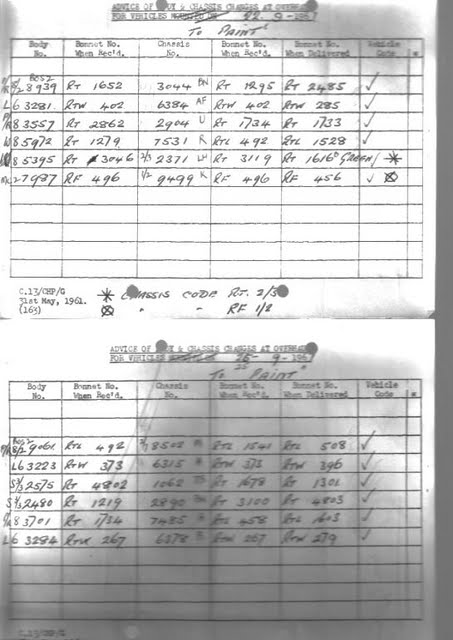 ADVICE OF BODY & CHASSIS CHANGES AT OVERHAUL
FOR VEHICLES 22-9-1967
"TO PAINT"
Body No. Bonnet No. When Rec'd. Chassis No. Bonnet No. When Rec'd. Bonnet No. When Delivered Vehicle Code *
8939 RT 1652 3044 BN RT 1295 RT 2485 ✓
L6 3281 RTW 402 6384 AF RTW 402 RTW 285 ✓
8 3557 RT 2862 2904 U RT 1734 RT 1733 ✓
8 5972 RT 1279 7531 R RTL 492 RTL 1528 ✓
8 5395 RT 3046 2/3 2371 RT 3119 RT 1616 GREEN/ *
7987 RF 496 1/2 9499 K RF 496 RF 456 ✓
C.13/CHP/G
31st May, 1961.
(163)
* CHASSIS CODE RT. 2/3
" " RF 1/2
ADVICE OF BODY & CHASSIS CHANGES AT OVERHAUL
FOR VEHICLES 25-9-1967
TO "PAINT"
Body No. Bonnet No. When Rec'd. Chassis No. Bonnet No. When Rec'd. Bonnet No. When Delivered Vehicle Code *
9061 RTL 492 8502 RTL 1541 RTL 508 ✓
L6 3223 RTW 373 6315 RTW 373 RTW 396 ✓
2575 RT 4802 1062 RT 1678 RT 1301 ✓
2480 RT 1219 2890 RT 3100 RT 4803 ✓
8 3701 RT 1734 7485 RTL 458 RTL 1603 ✓
L6 3284 RTW 267 6378 RTW 267 RTW 279 ✓
C.13/CHP/G